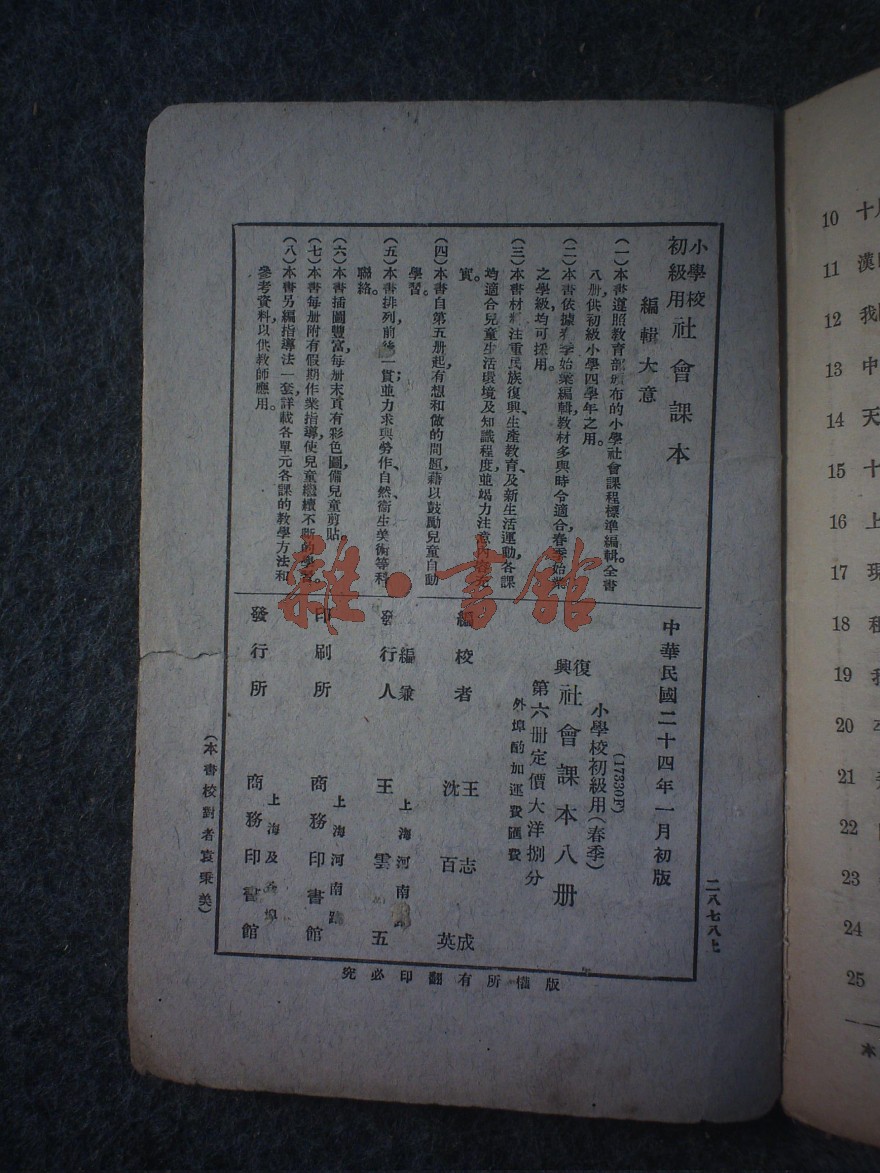 小學校
初級用
社會課本
編輯大意
(一)本書遵照教育部頒布的小學社會課程標準編輯。全書
八册供初級小學四學年之用。
(二)本書依據春季始業編輯,教材多與時令適合,春季始業
之學級,均可採用。
(三)本書材料注重民族復興、生產教育、及新生活運動,各課
均適合兒童生活環境及知識程度,並竭力注意內容充
實。
(四)本書自第五册起,有想和做的問題,藉以鼓勵兒童自動
學習。
(五)本書排列前後一貫;並力求與勞作、自然、衞生、美術等科
聯絡。
(六)本書插圖豐富,每册末頁有彩色圖,備兒童剪貼。
(七)本書每册附有假期作業指導,使兒童繼續不斷的學習。
(八)本書另編指導法一套,詳載各單元各課的教學方法和
參考資料,以供教師應用。
中華民國二十四年一月初版
(17330F)
小學校初級用(春季)
復興 社會課本八册
第六册定價大洋捌分
外埠酌加運費匯費
編校者 王志成
沈百英
編兼
發行人 上海河南路
王雲五
印刷所 上海河南路
商務印書館
發行所 上海及各埠
商務印書館
(本書校對者袁秉美)
二八七八上
版權所有翻印必究
雜·書館
10 十
11 漢
12 我
13 中
14 天
15 十
16 上
17 現
18 租
19
20
21
22
23
24
25
本